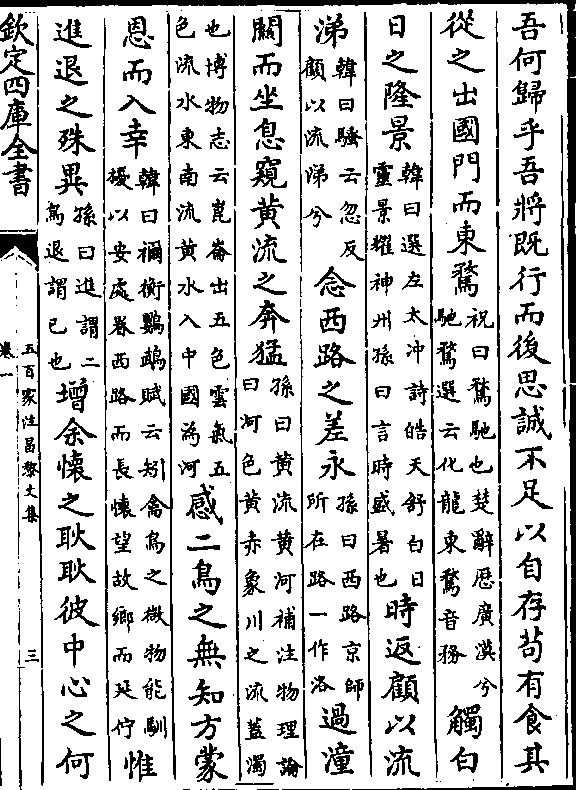 吾何歸乎吾將既行而後思誠不足以自存苟有食其
從之出國門而東騖祝曰騖馳也楚辭歴廣漠兮馳騖選云化龍東騖音務觸白
日之隆景韓曰選左太沖詩皓天舒白日靈景耀神州孫曰言時盛暑也時返顧以流
涕韓曰騷云忽反顧以流涕兮念西路之差永孫曰西路京師所在路一作洛過潼
關而坐息窺黄流之奔猛孫曰黄流黄河補注物理論曰河色黄赤象川之流蓋濁
也博物志云崑崙出五色雲氣五色流水東南流黄水入中國為河感二鳥之無知方蒙
恩而入幸韓曰禰衡鸚鵡賦云矧禽鳥之微物能馴擾以安處眷西路而長懷望故鄉而延佇惟
進退之殊異孫曰進謂二鳥退謂已也增余懷之耿耿彼中心之何
欽定四庫全書
五百家注昌黎文集
卷一
三